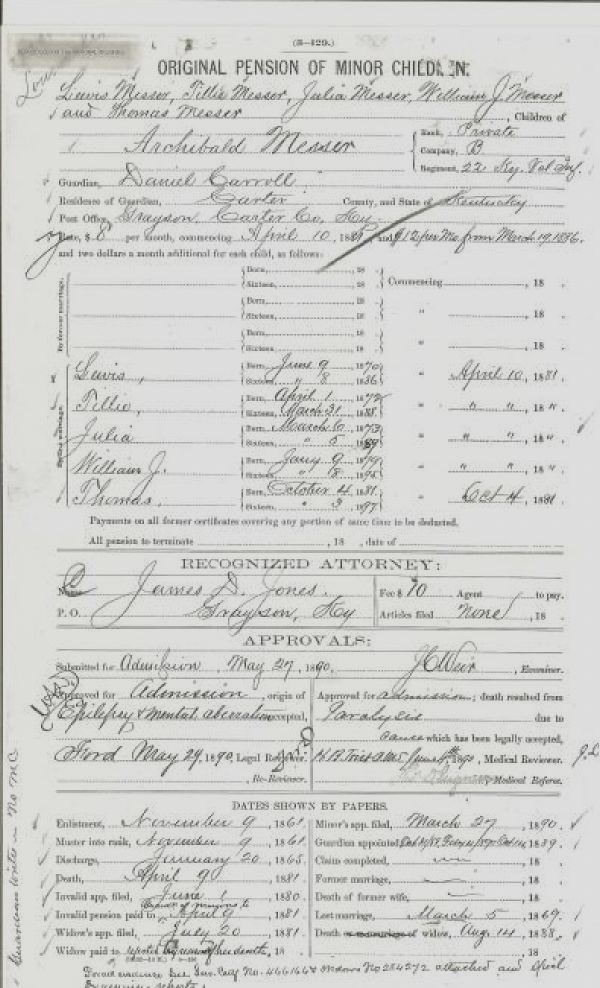 (3-129.)
ORIGINAL PENSION OF MINOR CHILDREN.
Lewis Messer, Tillie Messer, Julia Messer, William J. Messer
and Thomas Messer, Children of
Archibald Messer
Rank, Private
Company, B
Regiment, 22 Ky. Vol. Inf.
Guardian, Daniel Carroll
Residence of Guardian, Carter County, and State of Kentucky
Post Office, Grayson, Carter Co, Ky.
Rate, $8 per month, commencing April 10, 1881, and $12 per Mo. from March 19, 1886.
and two dollars a month additional for each child, as follows:
By former marriage.
Born, , 18 Commencing , 18 .
Sixteen, , 18
Born, , 18 " , 18 .
Sixteen, , 18
Born, , 18 " , 18 .
Sixteen, , 18
Lewis, Born, June 9, 1870 " April 10, 1881.
Sixteen, " 8, 1886
Tillie, Born, April 1, 1872 " " ", 18 " .
Sixteen, March 31, 1888.
Julia Born, March 6, 1873 " " ", 18 " .
Sixteen, " 5, 1889
William J. Born, Jany 9, 1879 " " ", 18 " .
Sixteen, " 8, 1895
Thomas. Born, October 4, 1881 " Oct 4, 1881 .
Sixteen, " 3, 1897
Payments on all former certificates covering any portion of same time to be deducted.
All pension to terminate , 18 , date of
RECOGNIZED ATTORNEY:
Name James D. Jones. Fee $ 10 Agent to pay.
P. O. Grayson, Ky Articles filed None, 18 .
APPROVALS:
Submitted for Admission, May 27, 1890. J C Weir, Examiner.
Approved for Admission, origin of Approved for admission; death resulted from
Epilepsy & mental aberration accepted, Paralysis due to
cause which has been legally accepted,
Ford May 29, 1890, Legal Reviewer. 1890, Medical Reviewer.
, Re-Reviewer. , Medical Referee.
DATES SHOWN BY PAPERS.
Enlistment, November 9, 1861. Minor's app. filed, March 27, 1890.
Muster into rank, November 9, 1861 Guardian appointed 1889.
Discharge, January 20, 1865. Claim completed, , 18 .
Death, April 9, 1881. Former marriage, , 18 .
Invalid app. filed, June 1, 1880. Death of former wife, , 18 .
Invalid pension paid to April 9, 1881 Last marriage, March 5, 1869.
Widow's app. filed, July 20, 1881 Death of widow, Aug. 14, 1888.
Widow paid to , 18